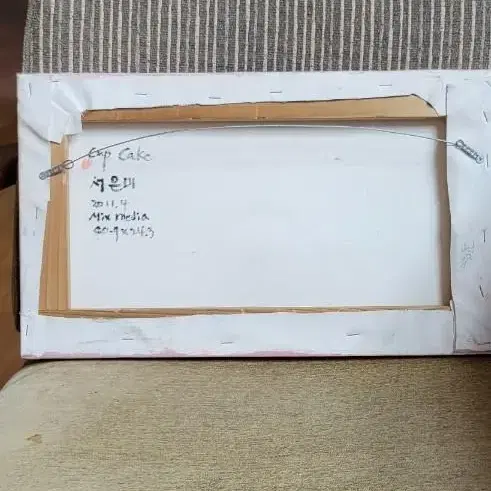 Cup Cake
서은미
2011.4
Mix media
60.9x24.3